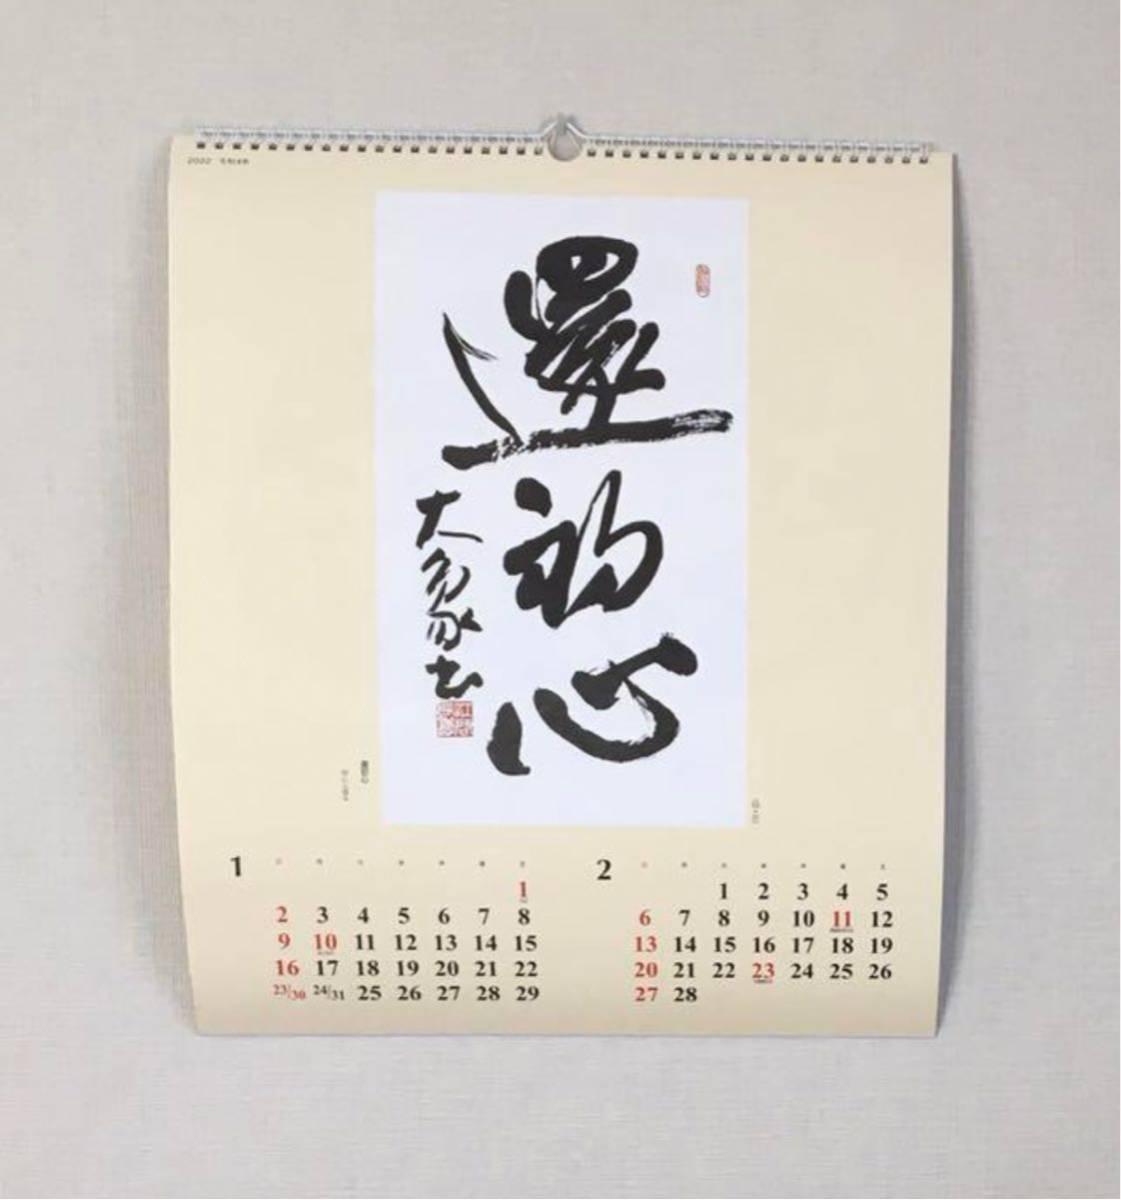 2022 令和4年
還初心
大象書
還初心
初心に還る
1
日 月 火 水 木 金 土
1
2 3 4 5 6 7 8
9 10 11 12 13 14 15
16 17 18 19 20 21 22
23/30 24/31 25 26 27 28 29
2
日 月 火 水 木 金 土
1 2 3 4 5
6 7 8 9 10 11 12
13 14 15 16 17 18 19
20 21 22 23 24 25 26
27 28